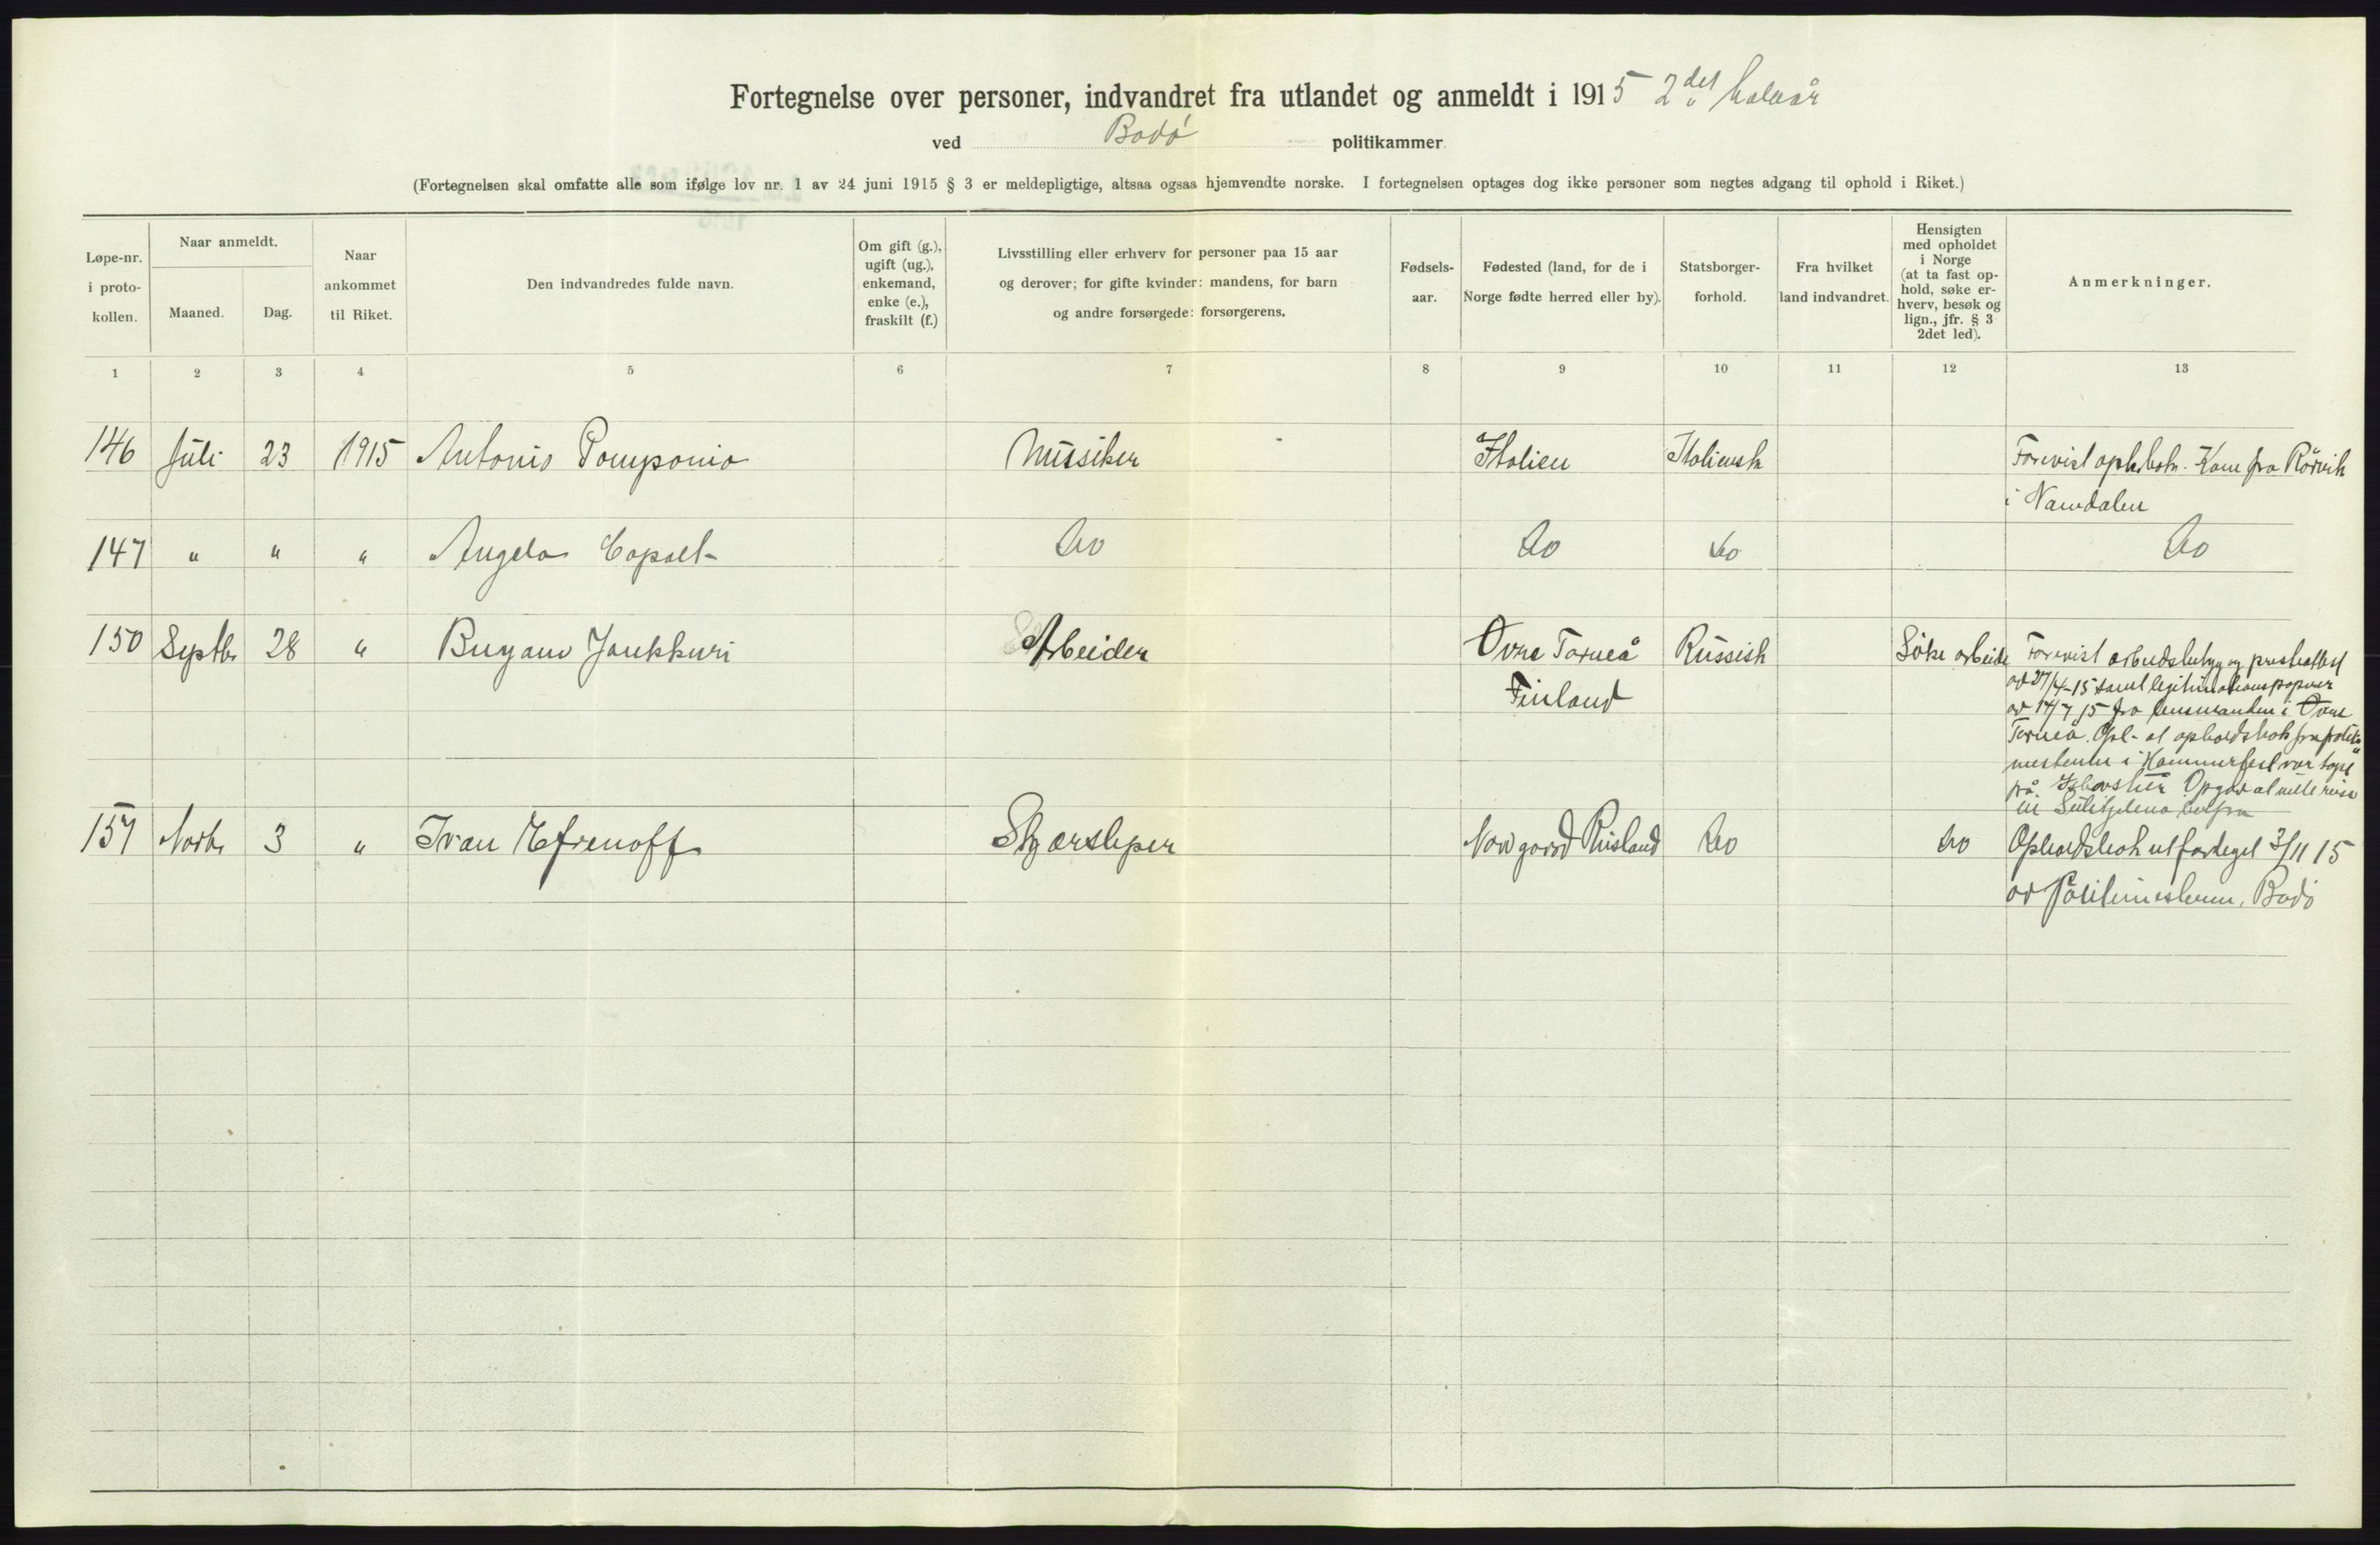 Fortegnelse over personer, indvandret fra utlandet og anmeldt i 1915 2det halvår
ved Bodø politikammer
(Fortegnelsen skal omfatte alle som ifølge lov nr. 1 av 24 juni 1915 § 3 er meldepligtige, altsaa ogsaa hjemvendte norske. I fortegnelsen optages dog ikke personer som negtes adgang til ophold i Riket.)
Løpe-nr. i proto-kollen.
Naar anmeldt.
Maaned.
Dag.
Naar ankommet til Riket.
Den indvandredes fulde navn.
Om gift (g.), ugift (ug.), enkemand, enke (e.), fraskilt (f.)
Livsstilling eller erhverv for personer paa 15 aar
og derover; for gifte kvinder: mandens, for barn
og andre forsørgede: forsørgerens.
Fødsels-aar.
Fødested (land, for de i
Norge fødte herred eller by).
Statsborger-forhold.
Fra hvilket
land indvandret.
Hensigten
med opholdet
i Norge
(at ta fast op-
hold, søke er-
hverv, besøk og
lign., jfr. § 3
2det led).
Anmerkninger.
1 2 3 4 5 6 7 8 9 10 11 12 13
146 Juli 23 1915 Antonio Pomponio Musiker Italien Italiensk Forevist Kom fra Rörvik
i Namdalen
147 " " " Angelo do do do do
150 Septbr 28 " Arbeider Övre Torneå Russisk Söke arbeide Forevist arbeidsbetyg og prestattest
Finland
av 27/4-15 samt legitimationspapirer
av 17/7 15 fra lensmanden i Övre
Torneå. Opl. at opholdsbok fra politi-
mesteren i Hammerfest var tapt
på Opgav at ville reise
til Sulitjelma herfra
157 Novbr 3 " Ivan Efrenoff Skjærsliper Novgorod Rusland do do Opholdsbok utfærdiget 3/11 15
av Politimesteren, Bodö